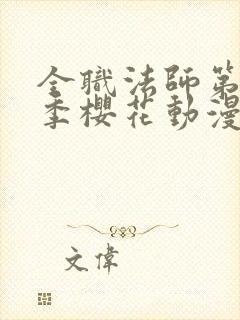 全職法師第
季櫻花動漫
文偉